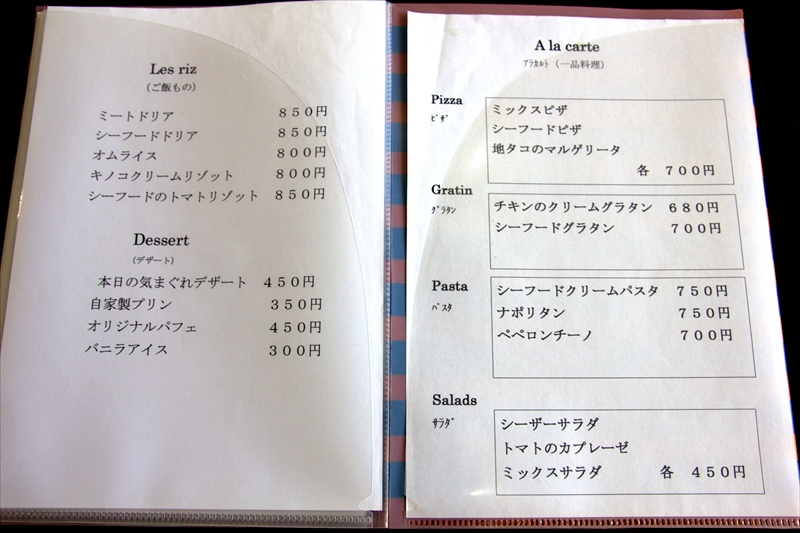 Les riz
(ご飯もの)
ミートドリア ８５０円
シーフードドリア ８５０円
オムライス ８００円
キノコクリームリゾット ８００円
シーフードのトマトリゾット ８５０円
Dessert
(デザート)
本日の気まぐれデザート ４５０円
自家製プリン ３５０円
オリジナルパフェ ４５０円
バニラアイス ３００円
A la carte
ｱﾗｶﾙﾄ (一品料理)
Pizza
ﾋﾟｻﾞ
ミックスピザ
シーフードピザ
地タコのマルゲリータ
各 ７００円
Gratin
ｸﾞﾗﾀﾝ
チキンのクリームグラタン ６８０円
シーフードグラタン ７００円
Pasta
ﾊﾟｽﾀ
シーフードクリームパスタ ７５０円
ナポリタン ７５０円
ペペロンチーノ ７００円
Salads
ｻﾗﾀﾞ
シーザーサラダ
トマトのカプレーゼ
ミックスサラダ 各 ４５０円